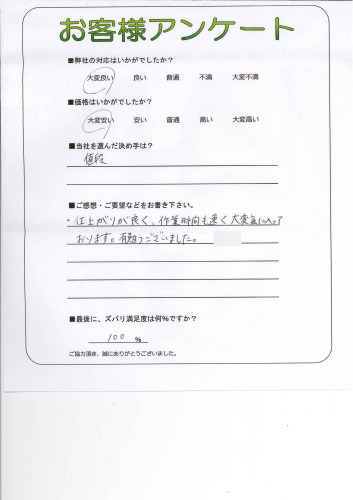 お客様アンケート
■弊社の対応はいかがでしたか?
大変良い 良い 普通 不満 大変不満
■価格はいかがでしたか?
大変安い 安い 普通 高い 大変高い
■当社を選んだ決め手は?
値段
■ご感想・ご要望などをお書き下さい。
・仕上がりが良く、作業時間も速く大変気に入って
おります。有難うございました。
■最後に、ズバリ満足度は何%ですか?
100 %
ご協力頂き、誠にありがとうございました。